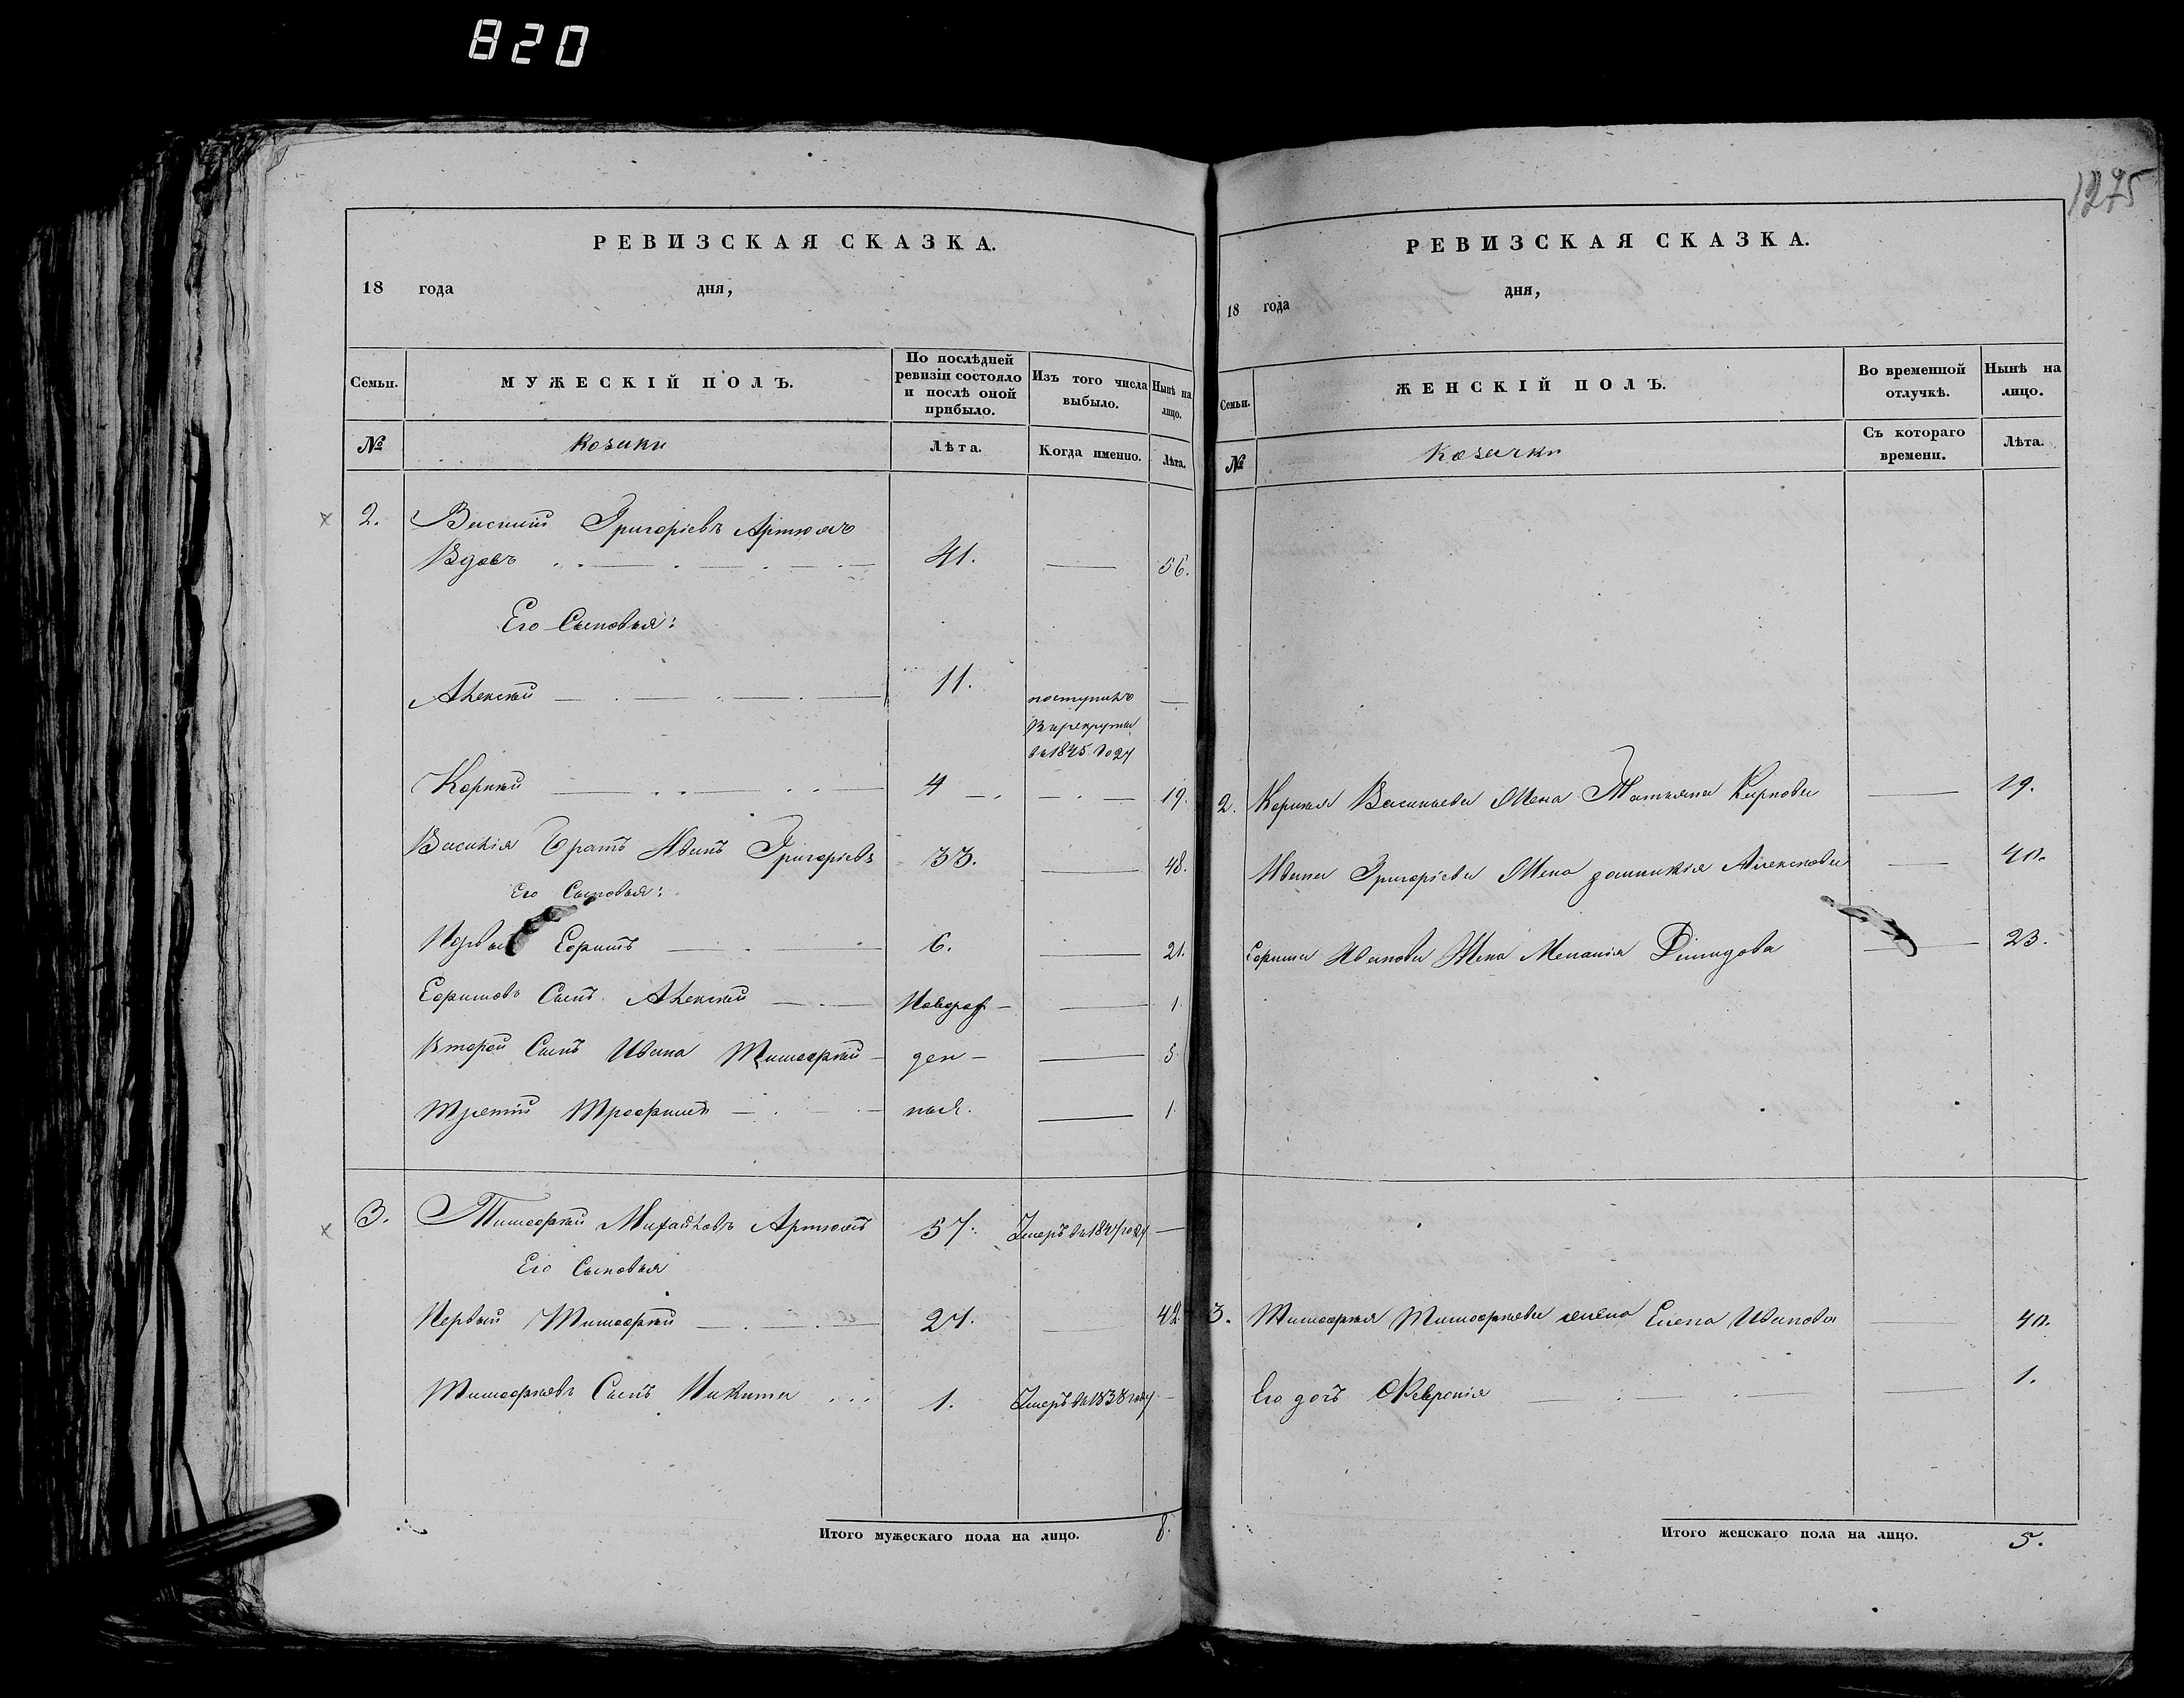 820
1275
РЕВИЗСКАЯ СКАЗКА.
18 года дня,
Семьи.
МУЖЕСКІЙ ПОЛЪ.
По послѣдней ревизіи состояло и послѣ оной прибыло.
Изъ того числа выбыло.
Нынѣ на лицо.
№
Козаки
Лѣта.
Когда именно.
Лѣта.
2. Василий Григоріевъ Артюхъ
Вдовъ 41. 56.
Его Сыновья:
Алексѣй 11. поступилъ
в рекруты
въ 1845 году
Корнѣй 4 19.
Василія Братъ Иванъ Григоріевъ 33. 48.
Его Сыновья:
Первый Ефимъ 6. 21.
Ефимовъ Сынъ Алексѣй Новорож 1.
Второй Сынъ Ивана Тимофѣй ден 5.
Третій Трофимъ посл. 1.
3. Тимофѣй Михайловъ Артюхъ 57. Умеръ въ 1847 году
Его Сыновья
Первый Тимофѣй 27. 42.
Тимофѣевъ Сынъ Никита 1. Умеръ въ 1838 году
Итого мужескаго пола на лицо. 8.
РЕВИЗСКАЯ СКАЗКА.
18 года дня,
Семьи.
ЖЕНСКІЙ ПОЛЪ.
Во временной отлучкѣ.
Нынѣ на лицо.
№
Козачки
Съ котораго времени.
Лѣта.
2. Корнѣя Васильева Жена Татьяна Карпова 19.
Ивана Григоріева Жена Алексѣева 40.
Ефима Иванова Жена Меланія Демидова 23.
3. Тимофѣя Тимофѣева жена Елена Иванова 40.
Его дочь Февронія 1.
Итого женскаго пола на лицо. 5.